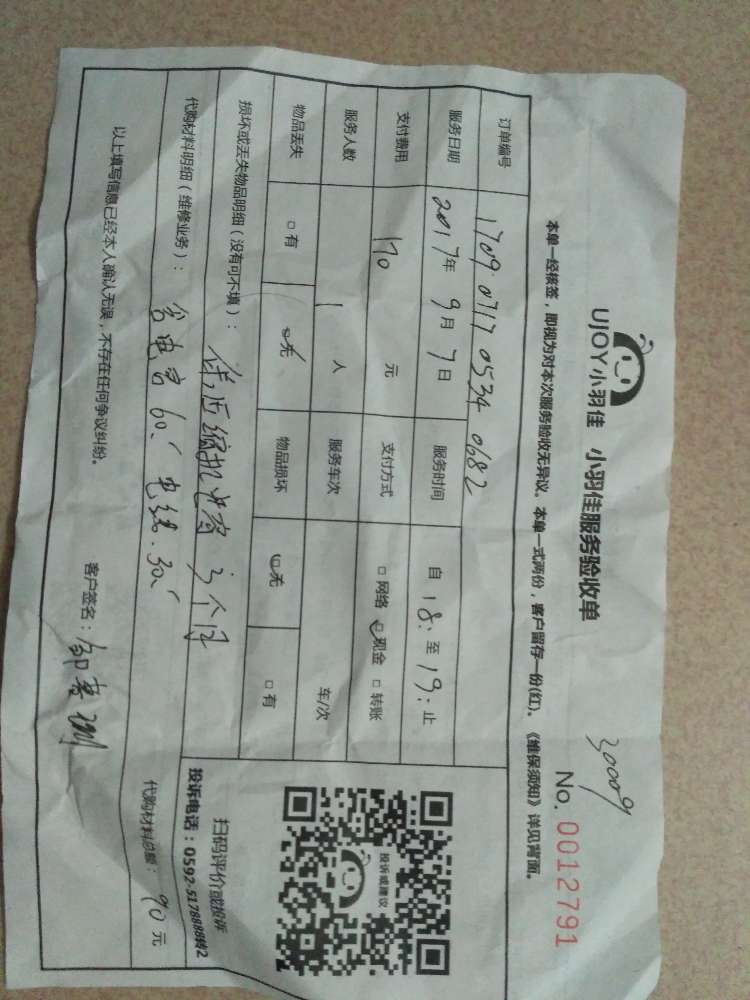 30009
UJOY小羽佳 小羽佳服务验收单 No. 0012791
本单一经核签，即视为对本次服务验收无异议。本单一式两份，客户留存一份(红)。《维保须知》详见背面。
订单编号 1709071705340682
服务日期 2017年 9月 7日 服务时间 自 18: 至 19: 止
支付费用 170 元 支付方式 □ 网络 □ 现金 □ 转账
服务人数 1 人 服务车次 车/次
物品丢失 □ 有 □ 无 物品损坏 □ 无 □ 有
损坏或丢失物品明细（没有可不填）： 保 压缩机电容 3个月
代购材料明细（维修业务）： 电容60、电线30、
代购材料总额： 90 元
以上填写信息已经本人确认无误，不存在任何争议纠纷。 客户签名：
投诉或建议
扫码评价或投诉
投诉电话：0592-5178888转2